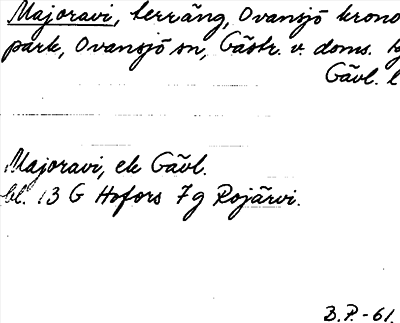 Majoravi, terräng, Ovansjö krono
park, Ovansjö sn, Gästr. v. doms.
Gävl. l
Majoravi, ek Gävl.
bl. 13 G Hofors 7g Rojärvi.
B.P.-61.